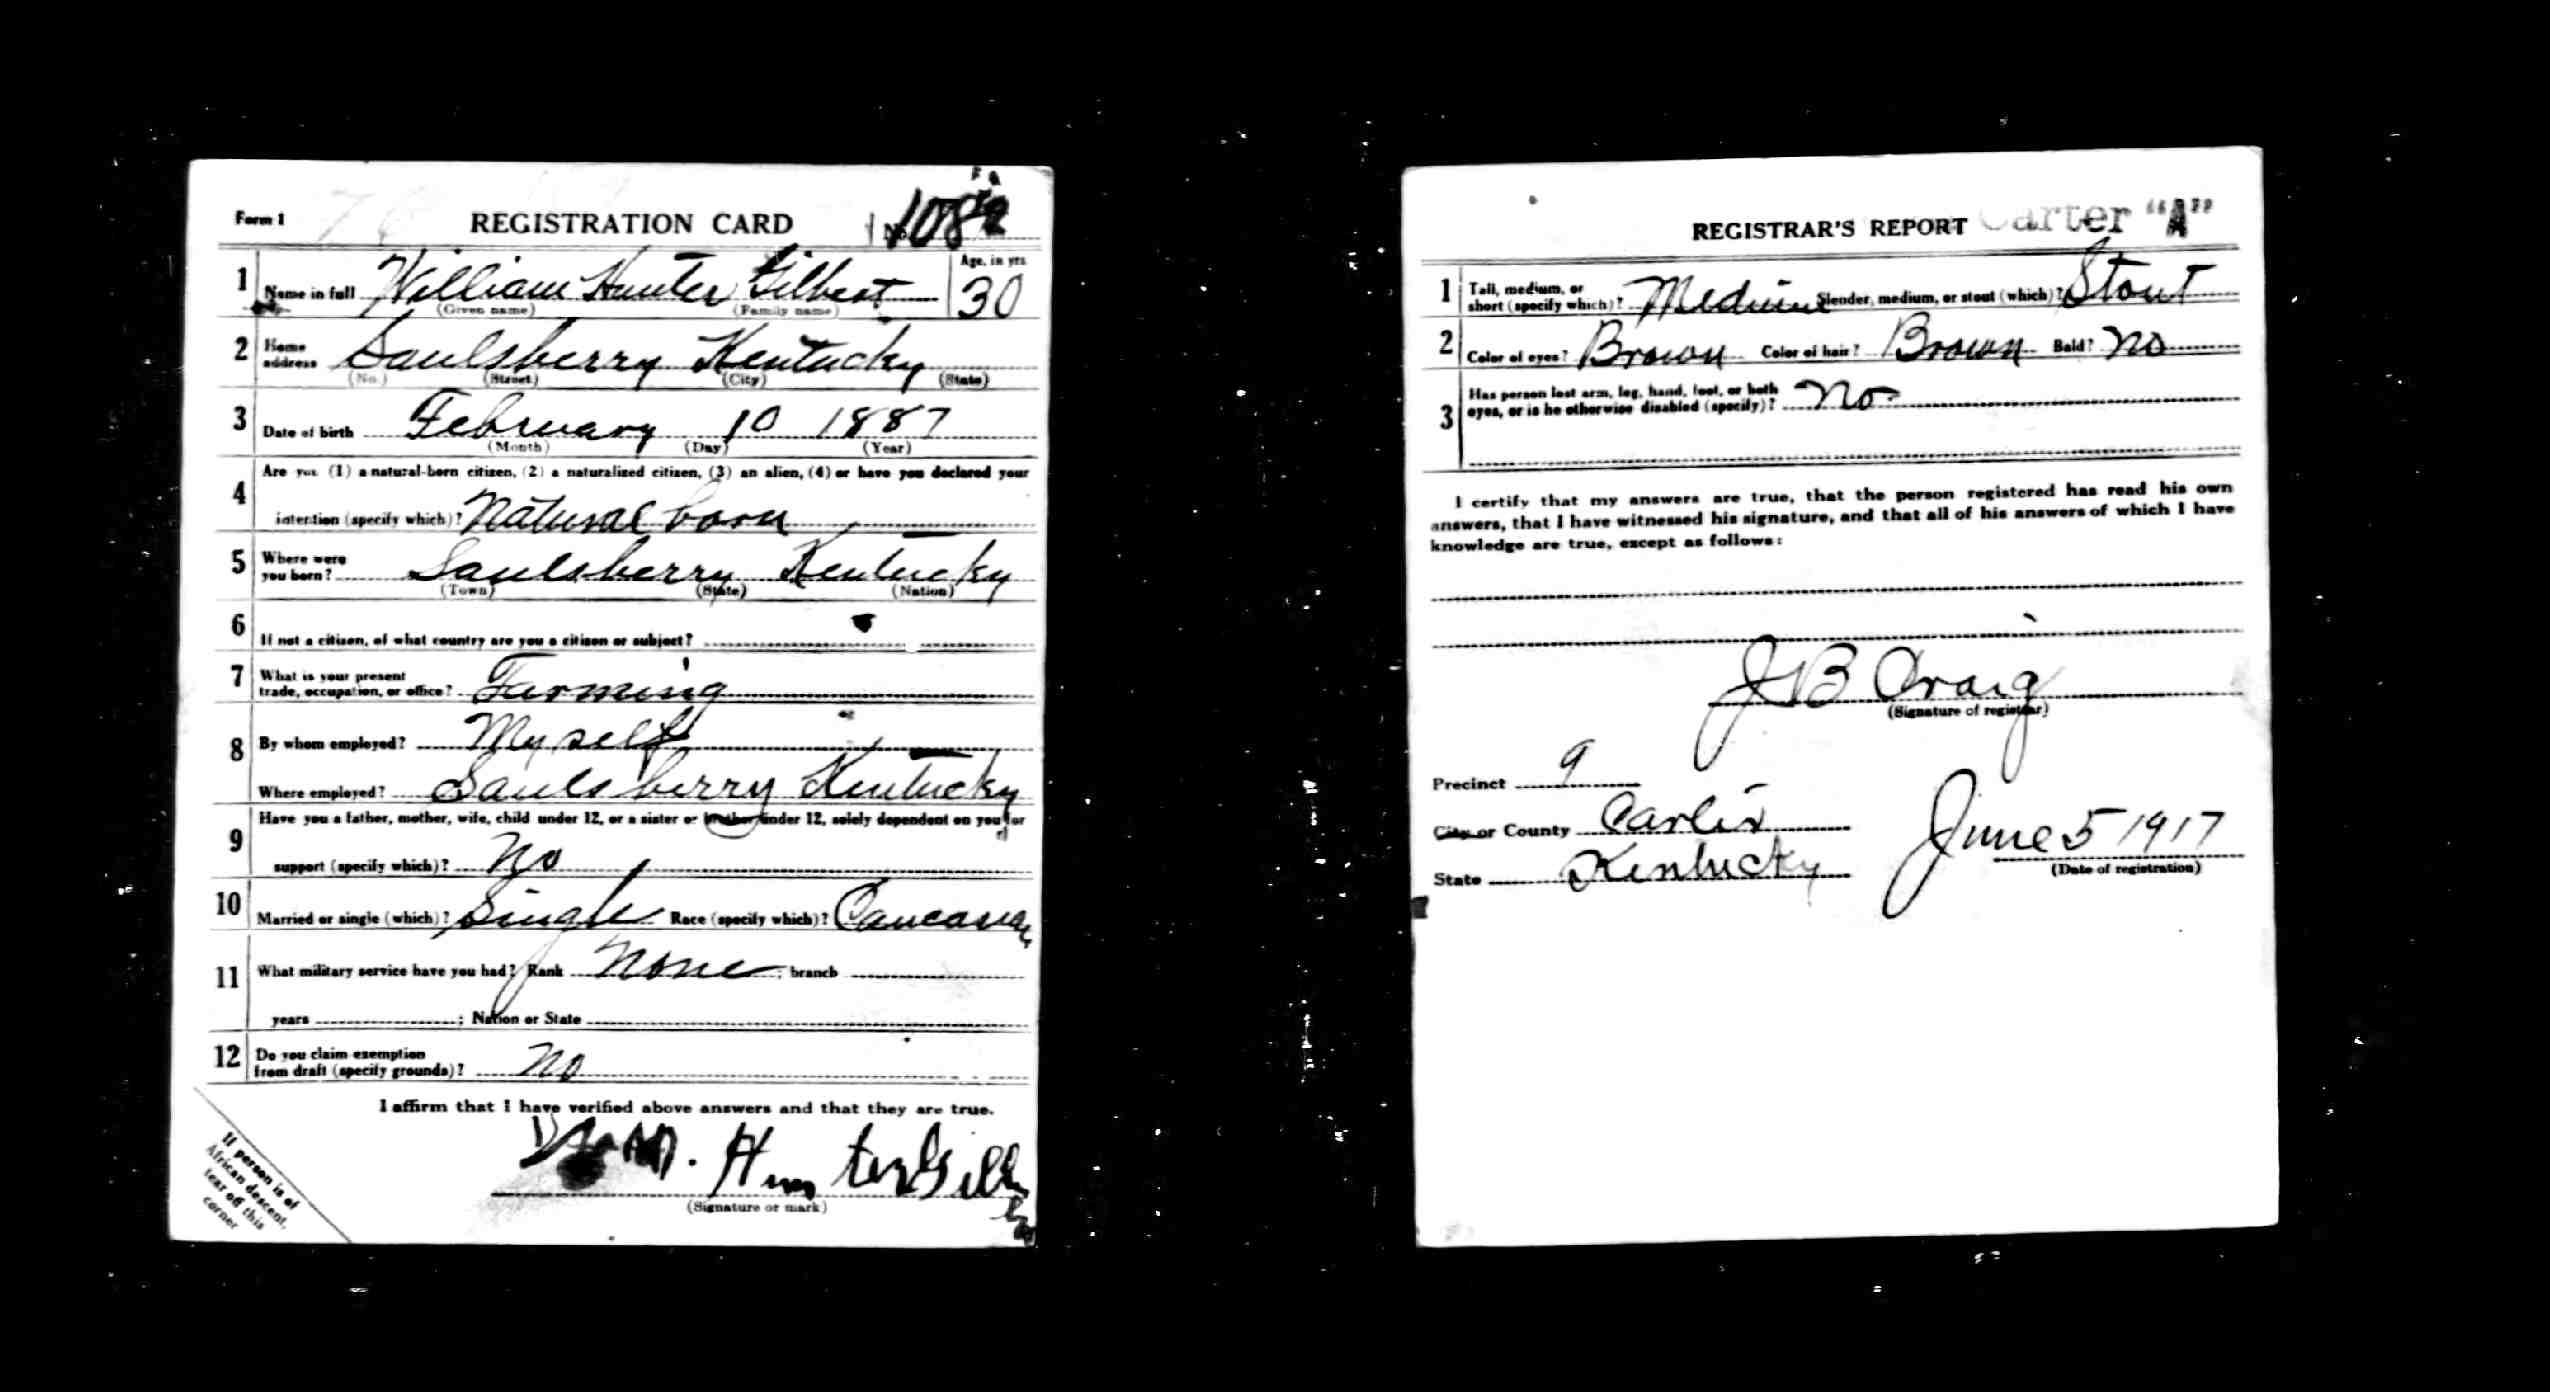 Form 1
REGISTRATION CARD No. 108
1 Name in full William Hunter Gilbert Age, in yrs. 30
(Given name) (Family name)
2 Home address Saulsberry Kentucky
(No.) (Street) (City) (State)
3 Date of birth February 10 1887
(Month) (Day) (Year)
4 Are you (1) a natural-born citizen, (2) a naturalized citizen, (3) an alien, (4) or have you declared your
intention (specify which)? Natural born
5 Where were you born? Saulsberry Kentucky
(Town) (State) (Nation)
6 If not a citizen, of what country are you a citizen or subject?
7 What is your present
trade, occupation, or office? Farming
8 By whom employed? Myself
Where employed? Saulsberry Kentucky
9 Have you a father, mother, wife, child under 12, or a sister or brother under 12, solely dependent on you for
support (specify which)? No
10 Married or single (which)? Single Race (specify which)? Caucasian
11 What military service have you had? Rank None ; branch
years ; Nation or State
12 Do you claim exemption
from draft (specify grounds)? No
I affirm that I have verified above answers and that they are true.
Hunter Gilbert
(Signature or mark)
If person is of
African descent,
tear off this
corner
REGISTRAR'S REPORT Carter "A"
1 Tall, medium, or
short (specify which)? Medium Slender, medium, or stout (which)? Stout
2 Color of eyes? Brown Color of hair? Brown Bald? No
3 Has person lost arm, leg, hand, foot, or both
eyes, or is he otherwise disabled (specify)? No
I certify that my answers are true, that the person registered has read his own
answers, that I have witnessed his signature, and that all of his answers of which I have
knowledge are true, except as follows:
J B Craig
(Signature of registrar)
Precinct 9
City or County Carter
June 5 1917
State Kentucky
(Date of registration)